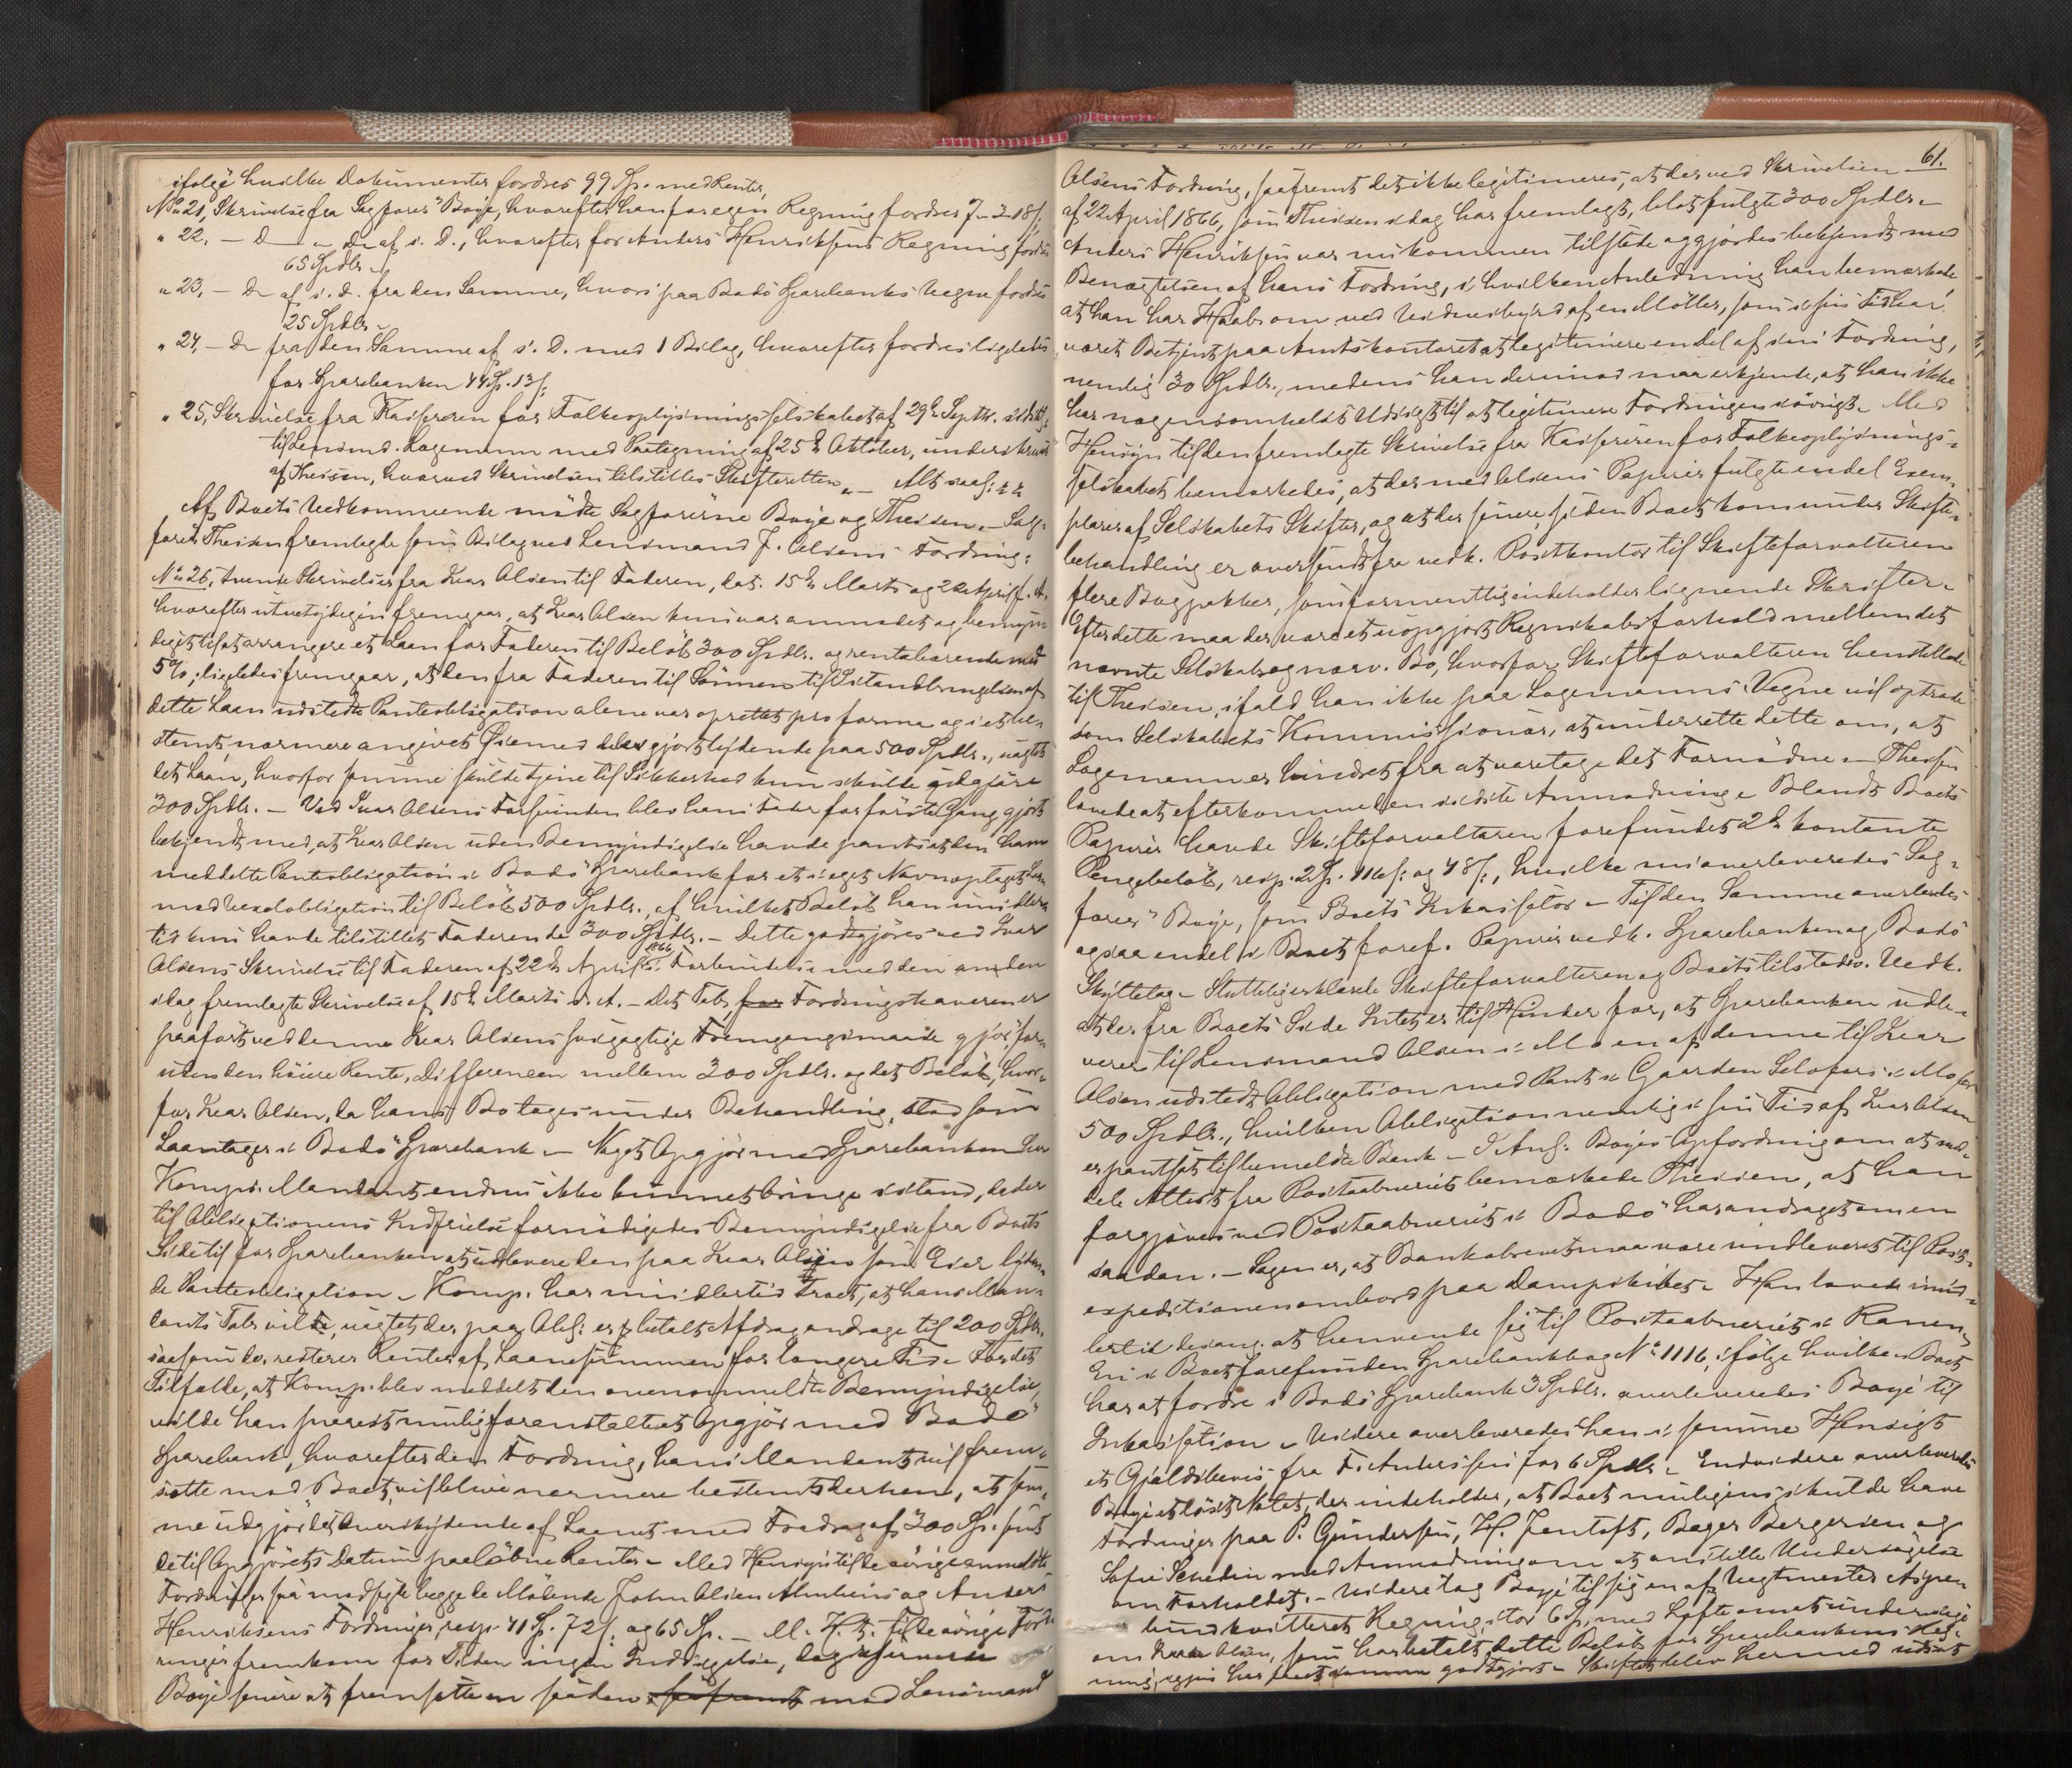 ifølge hvilke Dokumenter fordres 99 Sp. med Renter,
No 21, Skrivelse fra Sagfører Boye, hvorefter han for egen Regning fordrer 7 - 3 - 18 ſ:
" 22. — D — " Do af s. D., hvorefter for Anders Henriksens Regning fordres
65 Spdlr. —
" 23, — Do af s. D. fra den Samme, hvori paa Bodö Sparebanks Vegne fordres
25 Spdlr. —
" 24, — Do fra den Samme af s. D. med 1 Bilag, hvorefter fordres ligeledes
for Sparebanken 44 Sp. 13 ſ:
" 25, Skrivelse fra Kassereren for Folkeoplysningsselskabet af 29de Septbr. sidstl.
til Lensmd. Lagemann med Paategning af 25de Oktober, underskrevet
af Theisen, hvorved Skrivelsen tilstilles Skifteretten. — Alt saal:
Af Boets Vedkommende mödte Sagförerne Boye og Theisen. — Sag-
förer Theisen fremlagde som Bilag ved Lensmand J. Olsens Fordring:
No 26, tvende Skrivelser fra Ivar Olsen til Faderen, dat. 15de Marts og 22 April f. A.
hvorefter utvetydigen fremgaar, at Ivar Olsen kun var anmodet og bemyn-
diget til at arrangere et Laan for Faderen til Belöb 300 Spdlr. og rentebærende med
5 %; ligeledes fremgaar, at den fra Faderen til Sönnen til Istandbringelsen af
dette Laan udstedte Panteobligation alene var oprettet pro forma og i et be-
stemt nærmere angivet Öiemed blev gjort lydende paa 500 Spdlr., uagtet
det Laan, hvorfor samme skulde tjene til Sikkerhed kun skulde udgjöre
300 Spdlr. — Ved Ivar Olsens Forsvinden blev hans Fader for förste Gang gjort
bekjendt med, at Ivar Olsen uden Bemyndigelse havde pantsat den ham
meddelte Panteobligation i Bodö Sparebank for et i eget Navn optaget Laan
mod Vexelobligation til Belöb 500 Spdlr., af hvilket Belöb han imidler-
tid kun havde tilstillet Faderen de 300 Spdlr. — Dette godtgjöres ved Ivar
Olsens Skrivelse til Faderen af 22de April 1866 i Forbindelse med den anden
idag fremlagte Skrivelse af 15de Marts s. A. — Det Tab, for Fordringshaveren er
paafört ved denne Ivar Olsens svigagtige Fremgangsmaade gjör, for-
uden den höiere Rente, Differencen mellem 300 Spdlr. og det Belöb, hvor-
for Ivar Olsen, da hans Bo toges under Behandling, stod som
Laantager i Bodö Sparebank. — Noget Opgjör med Sparebanken har
Komp. Mandant endnu ikke kunnet bringe istand, da der
til Obligationens Indfrielse fornödigedes Bemyndigelse fra Boets
Side til for Sparebanken at udlevere den paa Ivar Olsens som Eier lyden-
de Panteobligation. — Komp. har imidlertid troet, at hans Man-
dants Tab vilde, uagtet der paa Obl: er betalt Afdrag andrage til 200 Spdlr.
saasom der resterer Renter af Laanesummen for længere Tid. — For det
Tilfælde, at Komp. blev meddelt den ovenanmeldte Bemyndigelse,
vilde han snarest mulig foranstaltet Opgjör med Bodö
Sparebank, hvorefter den Fordring, hans Mandant vil frem-
sætte mod Boet, vil blive nærmere bestemt derhen, at sam-
me udgjör det Overskydende af Laanet med Fradrag af 300 Sp. samt
de til Opgjörets Datum paalöbne Renter. — Med Hensyn til de övrige anmeldte
Fordringer saa modsagde begge de Mödende John Olsen Almheims og Anders
Henriksens Fordringer, resp. 41 Sp. 72 ſ: og 65 Sp. — M. H. t. til de övrige Ford-
ringer fremkom for Tiden ingen Indsigelse, dog reserverede
Boye senere at fremsætte en saadan saafremt mod Lensmand
61.
Olsens Fordring, saafremt det ikke legitimeres, at der ved Skrivelsen
af 22 April 1866, som Theisen idag har fremlagt, blot fulgte 300 Spdlr. —
Anders Henriksen var nu kommen tilstede og gjordes bekjendt med
Benægtelsen af hans Fordring, i hvilken Anledning han bemærkede,
at han har Haab om ved Vidnesbyrd af en Möller, som i sin Tid har
været Betjent paa Amtskontoret at legitimere en del af sin Fordring,
nemlig 30 Spdlr., medens han derimod maa erkjende, at han ikke
har nogensomhelst Udsigt til at legitimere Fordringen iövrigt. — Med
Hensyn til den fremlagte Skrivelse fra Kassereren for Folkeoplysnings-
selskabet bemærkedes, at der med Olsens Papirer fulgte endel Exem-
plarer af Selskabets Skifter, og at der senere, siden Boet kom under Skifte-
behandling er oversendt fra vedk. Postkontor til Skifteforvalteren
flere Bogpakker, som formentlig indeholder lignende Skrifter. —
Efter dette maa der være et uopgjort Regnskabsforhold mellem det
nævnte Selskab og nærv. Bo, hvorfor Skifteforvalteren henstillede
til Theisen, ifald han ikke paa Lagemanns Vegne vil optræde
som Selskabets Kommissionær, at underrette dette om, at
Lagemann er hindret fra at varetage det Fornödne. — Theisen
lovede at efterkomme den sidste Anmodning. — Blandt Boets
Papirer havde Skifteforvalteren forefundet 2de kontante
Pengebelöb, resp. 2 Sp. 116 ſ: og 48 ſ:, hvilke nu overleveredes Sag-
förer Boye, som Boets Inkassator. — Til den Samme overleveredes
ogsaa endel i Boet foref. Papirer vedk. Sparebanken og Bodö
Skyttelag. — Sluttelig erklærede Skifteforvalteren og Boets tilstedev. Vedk.
at der fra Boets Side Intet er til Hinder for, at Sparebanken udle-
verer til Lensmand Olsen i Mo en af denne til Ivar
Olsen udstedt Obligation med Pant i Gaarden Selofors i Mo for
500 Spdlr., hvilken Obligation nemlig i sin Tid af Ivar Olsen
er pantsat til bemeldte Bank. — I Anl: Boyes Opfordring om at med-
dele Attest fra Postaabneriet bemærkede Theisen, at han
forgjæves ved Postaabneriet i Bodö har andraget om en
saadan. — Sagen er, at Bankobrevet maa være indleveret til Post-
expeditionen ombord paa Dampskibet. — Han lovede imid-
lertid desang. at henvende sig til Postaabneriet i Ranen,
En i Boet forefunden Sparebankbog No 1116, ifølge hvilken Boet
har at fordre i Bodö Sparebank 3 Spdlr. overleveredes Boye til
Inkassation. — Videre overleveredes han i samme Hensigt
et Gjældsbevis fra F. Anderssen for 6 Spdlr. — Endvidere overleveredes
Boye et löst Notat, der indeholder, at Boet muligens skulde have
Fordringer paa P. Gundersen, H. Jentoft, Bager Bergersen og
Sofie Schedin med Anmodning om at anstille Undersögelse
om Forholdet. — Videre tog Boye til sig en af Vegtmester Aspen
kvitteret Regning, stor 6 Sp., med Löfte om at undersöge
om Ivar Olsen, som har betalt dette Belöb for Sparebankens Reg-
ning, igjen har faaet samme godtgjort. — Skiftet blev hermed udsat